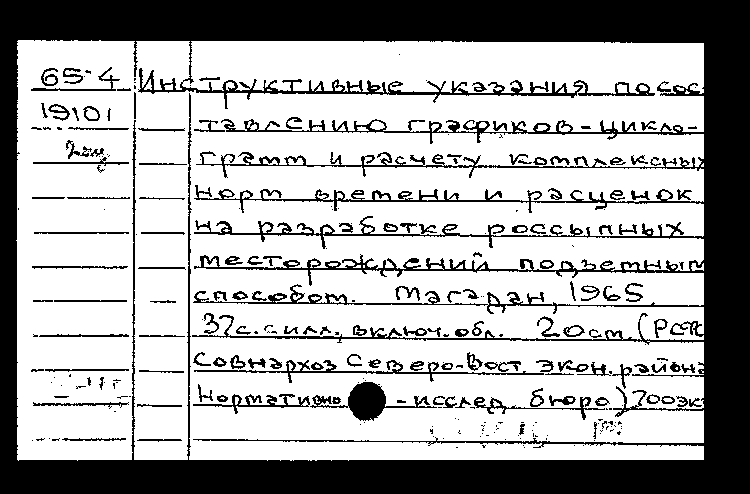 65-4 Инструктивные указания по сос-
19101 тавлению графиков-цикло-
грамм и расчету комплексных
норм времени и расценок
на разработке россыпных
месторождений подземным
способом. Магадан, 1965.
37с. с илл., включ. обл. 20см. (РСФС
Совнархоз Северо-Вост. экон. района
Нормативно-исслед. бюро) 700 эк